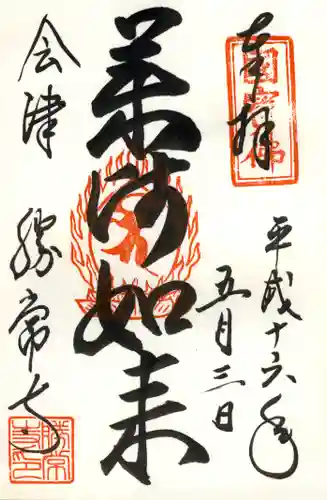 奉拝
国宝仏
平成十六年
五月三日
薬師如来
会津
勝常寺
勝常寺印